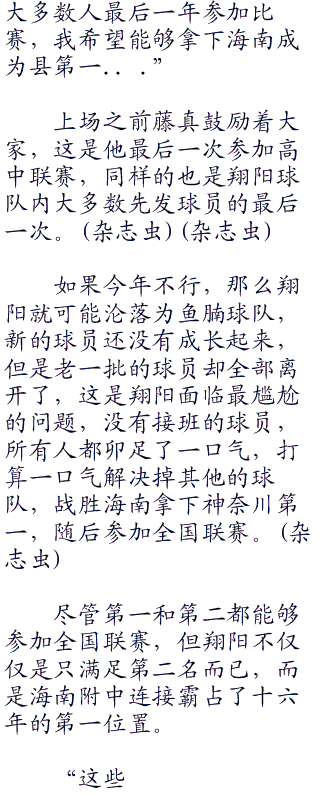 大多数人最后一年参加比
赛，我希望能够拿下海南成
为县第一．．．”
上场之前藤真鼓励着大
家，这是他最后一次参加高
中联赛，同样的也是翔阳球
队内大多数先发球员的最后
一次。(杂志虫)(杂志虫)
如果今年不行，那么翔
阳就可能沦落为鱼腩球队，
新的球员还没有成长起来，
但是老一批的球员却全部离
开了，这是翔阳面临最尴尬
的问题，没有接班的球员，
所有人都卯足了一口气，打
算一口气解决掉其他的球
队，战胜海南拿下神奈川第
一，随后参加全国联赛。(杂
志虫)
尽管第一和第二都能够
参加全国联赛，但翔阳不仅
仅是只满足第二名而已，而
是海南附中连接霸占了十六
年的第一位置。
“这些